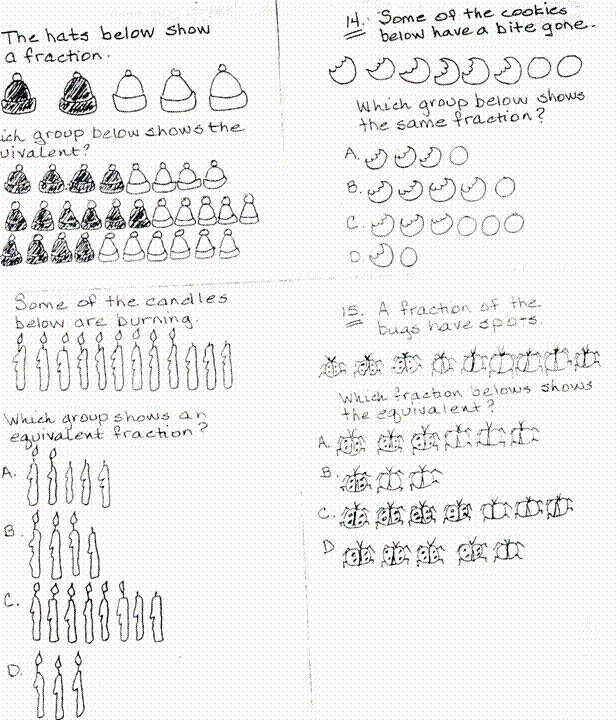 The hats below show
a fraction.
ich group below shows the
uivalent?
Some of the candles
below are burning.
Which group shows an
equivalent fraction?
A.
B.
C.
D.
14. Some of the cookies
below have a bite gone.
Which group below shows
the same fraction?
A.
B.
C.
D
15. A fraction of the
bugs have spots.
Which fraction belows shows
the equivalent?
A.
B.
C.
D